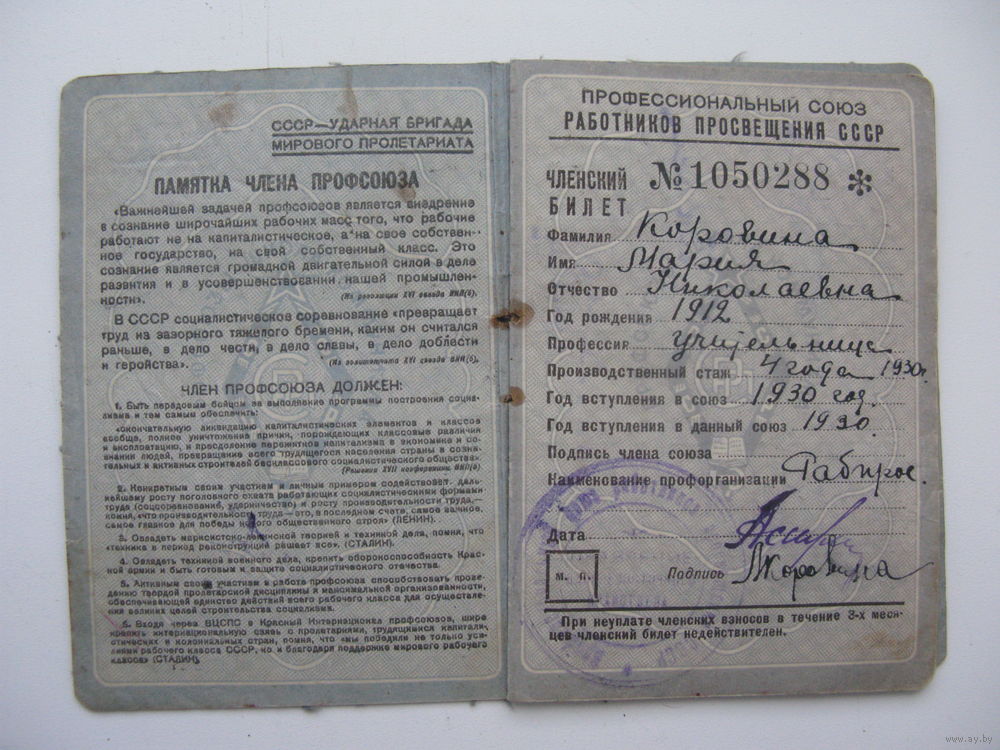 СССР—УДАРНАЯ БРИГАДА
МИРОВОГО ПРОЛЕТАРИАТА
ПАМЯТКА ЧЛЕНА ПРОФСОЮЗА
«Важнейшей задачей профсоюзов является внедрение
в сознание широчайших рабочих масс того, что рабочие
работают не на капиталистическое, а на свое собствен-
ное государство, на свой собственный класс. Это
сознание является громадной двигательной силой в деле
развития и в усовершенствовании нашей промышлен-
ности».
(Из резолюции XVI съезда ВКП(б).
В СССР социалистическое соревнование «превращает
труд из зазорного тяжелого бремени, каким он считался
раньше, в дело чести, в дело славы, в дело доблести
и геройства».
XVI съезда ВКП(б).
ЧЛЕН ПРОФСОЮЗА ДОЛЖЕН:
1. Быть передовым бойцом за выполнение программы построения социа-
лизма и тем самым обеспечить:
«окончательную ликвидацию капиталистических элементов и классов
вообще, полное уничтожение причин, порождающих классовые различия
и эксплоатацию, и преодоление пережитков капитализма в экономике и со-
знании людей, превращение всего трудящегося населения страны в созна-
тельных и активных строителей бесклассового социалистического общества».
(Решения XVII конференции ВКП(б)
2. Конкретным своим участием и личным примером содействовать даль-
нейшему росту поголовного охвата работающих социалистическими формами
труда (соцсоревнования, ударничество) и росту производительности труда,—
помня, что «производительность труда—это, в последнем счете, самое важное,
самое главное для победы нового общественного строя» (ЛЕНИН).
3. Овладеть марксистско-ленинской теорией и техникой дела, помня, что
«техника в период реконструкции решает все». (СТАЛИН).
4. Овладеть техникой военного дела, крепить обороноспособность Крас-
ной армии и быть готовым к защите социалистического отечества.
5. Активным своим участием в работе профсоюза способствовать прове-
дению твердой пролетарской дисциплины и максимальной организованности,
обеспечивающей единство действий всего рабочего класса для осуществле-
ния великих целей строительства социализма.
6. Входя через ВЦСПС в Красный Интернационал профсоюзов, шире
крепить интернациональную связь с пролетариями, трудящимися капитали-
стических и колониальных стран, помня, что «мы победили не только уси-
лиями рабочего класса СССР, но и благодаря поддержке мирового рабочего
класса» (СТАЛИН).
ПРОФЕССИОНАЛЬНЫЙ СОЮЗ
РАБОТНИКОВ ПРОСВЕЩЕНИЯ СССР
ЧЛЕНСКИЙ № 1050288 *
БИЛЕТ
Фамилия Коровина
Имя Мария
Отчество Николаевна
Год рождения 1912
Профессия учительница
Производственный стаж 4 года 1930г.
Год вступления в союз 1930 год.
Год вступления в данный союз 1930.
Подпись члена союза
Наименование профорганизации
Дата
М. П.
Подпись Коровина
При неуплате членских взносов в течение 3-х меся-
цев членский билет недействителен.
www.ay.by